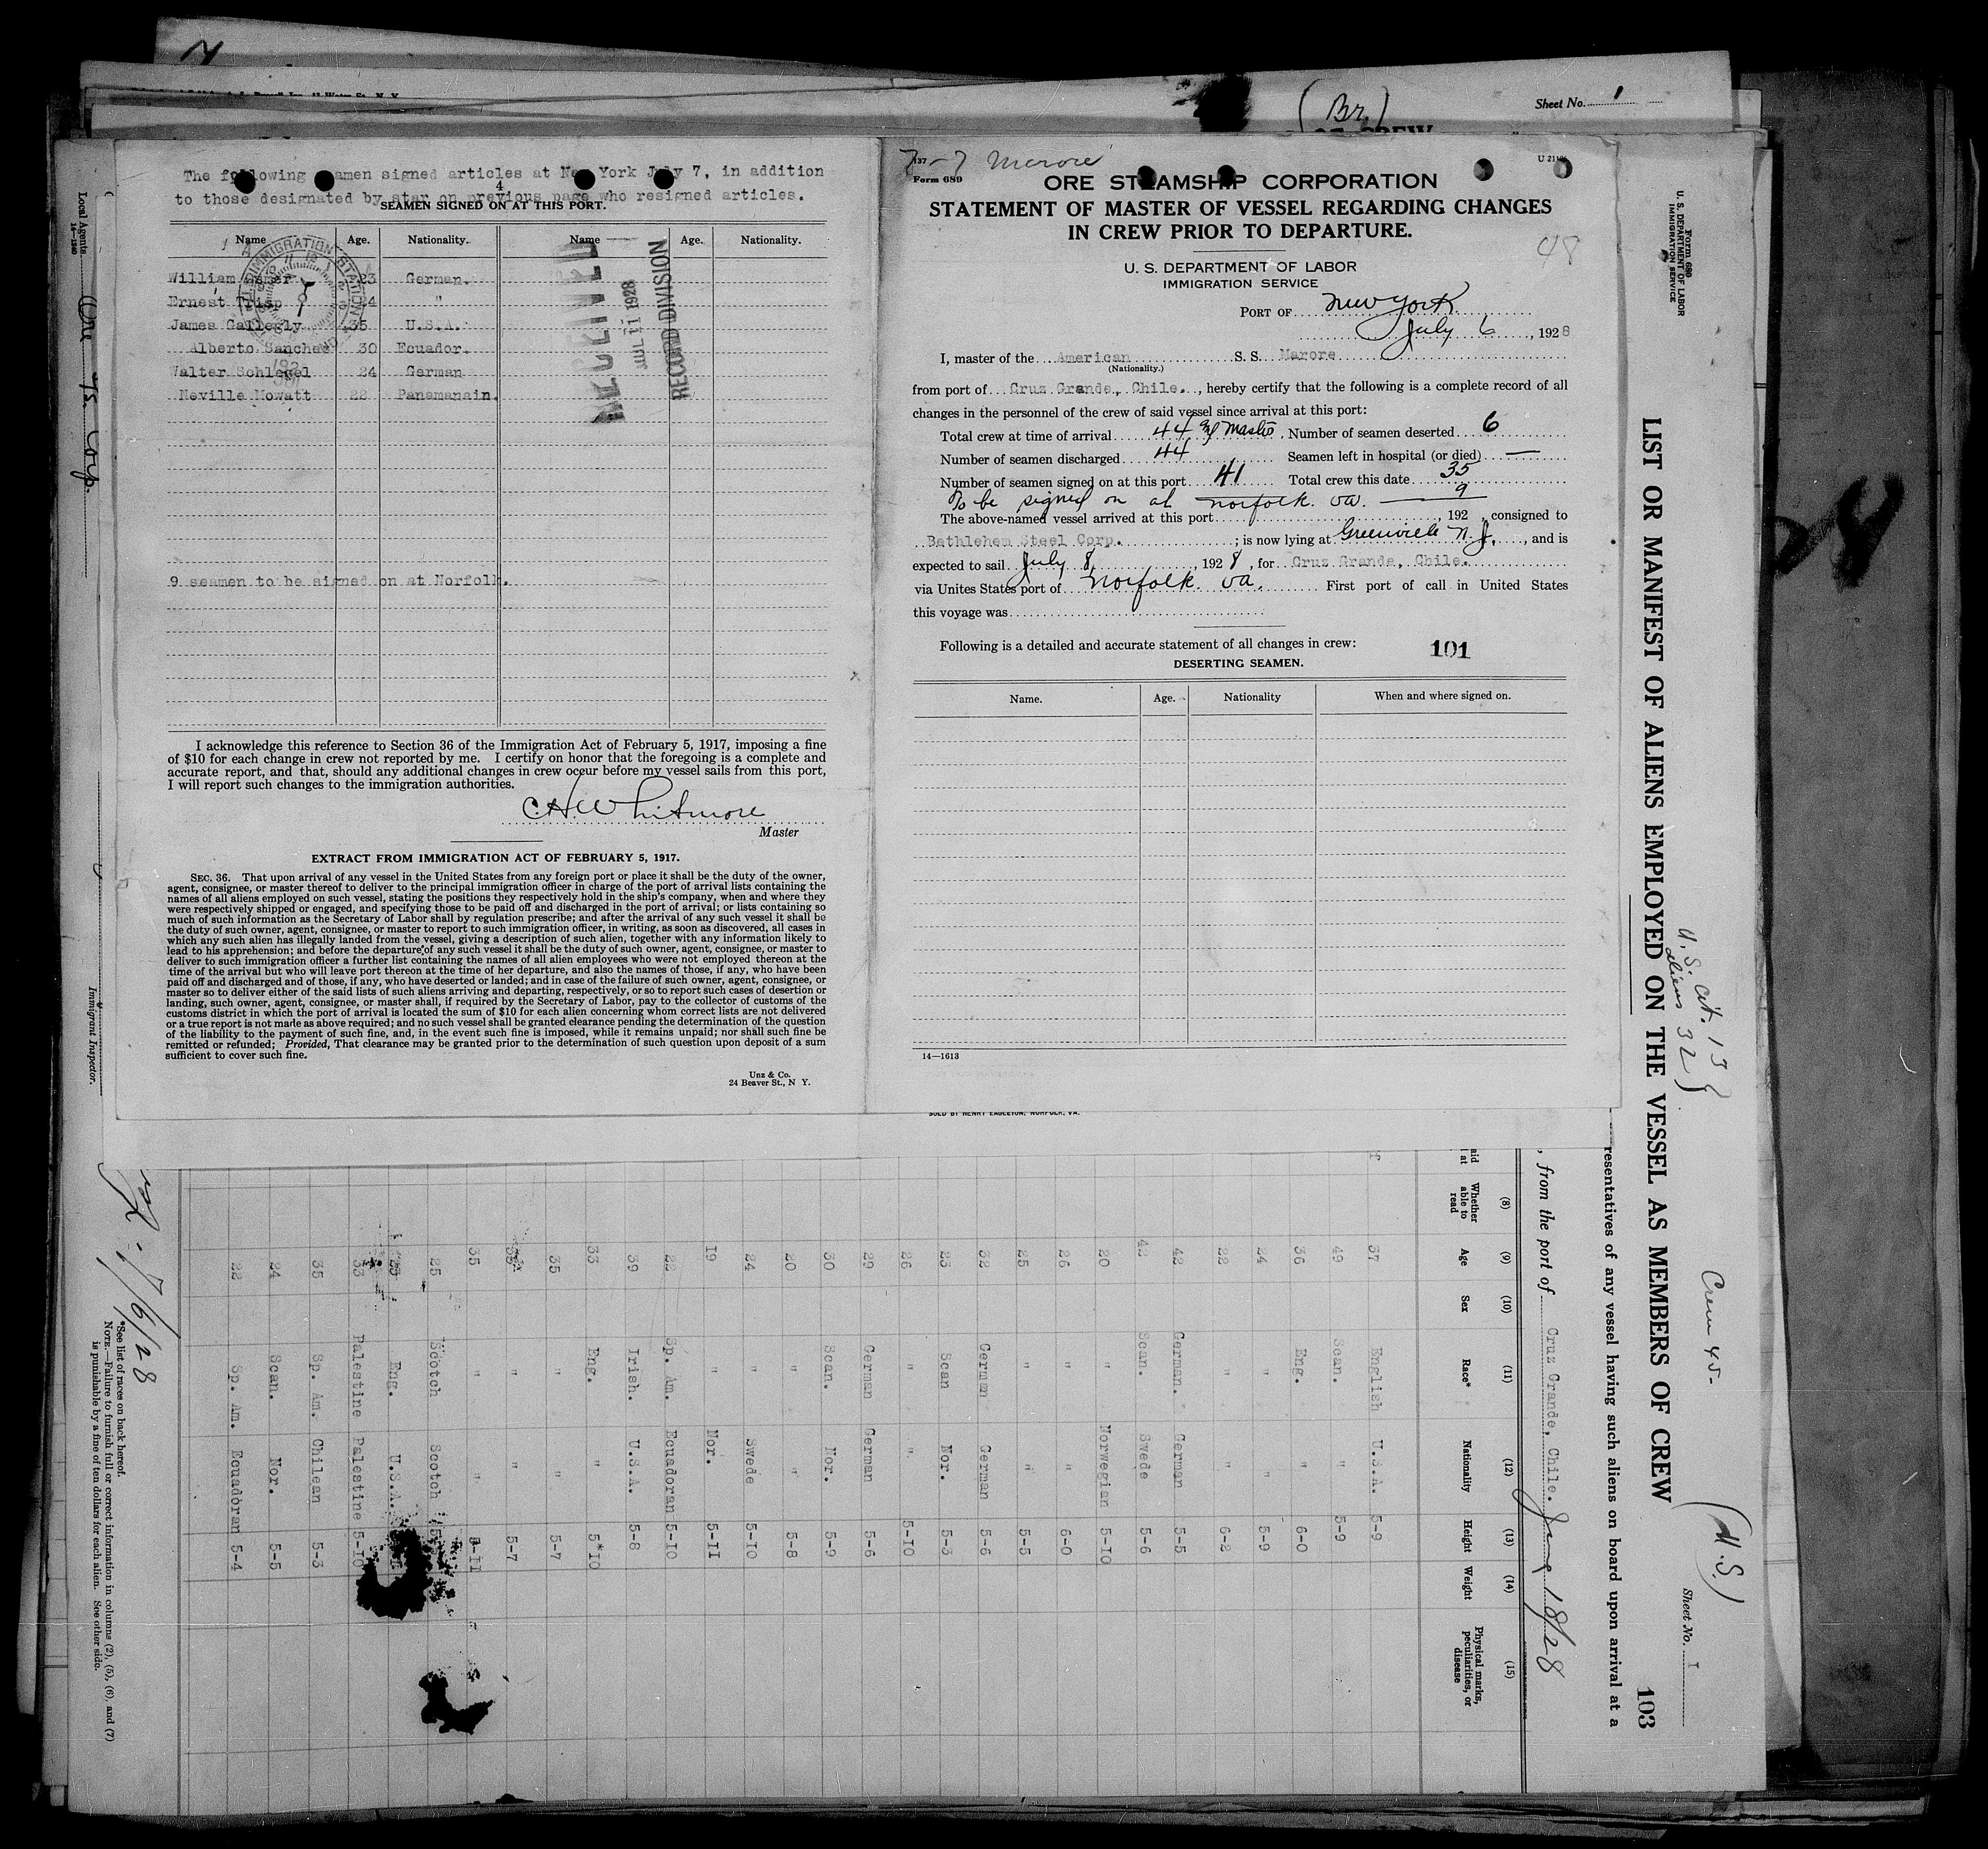 Sheet No. 1
(Br.)
The following seamen signed articles at New York July 7, in addition
to those designated by star on previous page who resigned articles.
4
SEAMEN SIGNED ON AT THIS PORT.
Name Age. Nationality. Name Age. Nationality.
William 23 German.
Ernest 24 "
James Gallegly 35 U.S.A.
Alberto Sanchez 30 Ecuador.
Walter Schlegel 24 German
Neville Mowatt 22 Panamanain.
IMMIGRATION STATION
RECEIVED
JUL 11 1928
RECORD DIVISION
9 seamen to be signed on at Norfolk.
I acknowledge this reference to Section 36 of the Immigration Act of February 5, 1917, imposing a fine
of $10 for each change in crew not reported by me. I certify on honor that the foregoing is a complete and
accurate report, and that, should any additional changes in crew occur before my vessel sails from this port,
I will report such changes to the immigration authorities.
C.H. Whitmore
Master
EXTRACT FROM IMMIGRATION ACT OF FEBRUARY 5, 1917.
SEC. 36. That upon arrival of any vessel in the United States from any foreign port or place it shall be the duty of the owner,
agent, consignee, or master thereof to deliver to the principal immigration officer in charge of the port of arrival lists containing the
names of all aliens employed on such vessel, stating the positions they respectively hold in the ship's company, when and where they
were respectively shipped or engaged, and specifying those to be paid off and discharged in the port of arrival; or lists containing so
much of such information as the Secretary of Labor shall by regulation prescribe; and after the arrival of any such vessel it shall be
the duty of such owner, agent, consignee, or master to report to such immigration officer, in writing, as soon as discovered, all cases in
which any such alien has illegally landed from the vessel, giving a description of such alien, together with any information likely to
lead to his apprehension; and before the departure of any such vessel it shall be the duty of such owner, agent, consignee, or master to
deliver to such immigration officer a further list containing the names of all alien employees who were not employed thereon at the
time of the arrival but who will leave port thereon at the time of her departure, and also the names of those, if any, who have been
paid off and discharged and of those, if any, who have deserted or landed; and in case of the failure of such owner, agent, consignee, or
master so to deliver either of the said lists of such aliens arriving and departing, respectively, or so to report such cases of desertion or
landing, such owner, agent, consignee, or master shall, if required by the Secretary of Labor, pay to the collector of customs of the
customs district in which the port of arrival is located the sum of $10 for each alien concerning whom correct lists are not delivered
or a true report is not made as above required; and no such vessel shall be granted clearance pending the determination of the question
of the liability to the payment of such fine, and, in the event such fine is imposed, while it remains unpaid; nor shall such fine be
remitted or refunded; Provided, That clearance may be granted prior to the determination of such question upon deposit of a sum
sufficient to cover such fine.
Unz & Co.
24 Beaver St., N Y.
7-7 Marore
Form 689
ORE STEAMSHIP CORPORATION
STATEMENT OF MASTER OF VESSEL REGARDING CHANGES
IN CREW PRIOR TO DEPARTURE.
48
U. S. DEPARTMENT OF LABOR
IMMIGRATION SERVICE
PORT OF New York
July 6, 1928
I, master of the American S. S. Marore
(Nationality.)
from port of Cruz Grande, Chile., hereby certify that the following is a complete record of all
changes in the personnel of the crew of said vessel since arrival at this port:
Total crew at time of arrival 44 Master. Number of seamen deserted 6
Number of seamen discharged 44 Seamen left in hospital (or died) —
Number of seamen signed on at this port 41 Total crew this date 35
To be signed on at Norfolk. Va. — 9
The above-named vessel arrived at this port , 192 , consigned to
Bethlehem Steel Corp. ; is now lying at Greenville N.J., and is
expected to sail July 8, 1928, for Cruz Grande, Chile.
via Unites States port of Norfolk. Va. First port of call in United States
this voyage was
Following is a detailed and accurate statement of all changes in crew: 101
DESERTING SEAMEN.
Name. Age. Nationality When and where signed on.
14—1613
SOLD BY HENRY EAGLETON, NORFOLK, VA.
Form 689
U. S. DEPARTMENT OF LABOR
IMMIGRATION SERVICE
LIST OR MANIFEST OF ALIENS EMPLOYED ON THE VESSEL AS MEMBERS OF CREW
U.S. cit. 13
aliens 32
Crew 45-
(U.S.)
Sheet No. 1
103
resentatives of any vessel having such aliens on board upon arrival at a
, from the port of Cruz Grande, Chile. June 18/28
(8) (9) (10) (11) (12) (13) (14) (15)
Whether able to read Age Sex Race* Nationality Height Weight Physical marks, peculiarities, or disease
37 English U.S.A. 5-9
49 Scan. " 5-9
36 Eng. " 6-0
24 " " 5-9
22 " " 6-2
42 German. German 5-5
42 Scan. Swede 5-6
20 " Norwegian 5-10
26 " " 6-0
25 " " 5-5
32 German German 5-6
23 Scan Nor. 5-3
26 " " 5-10
29 German German 5-6
30 Scan. Nor. 5-9
20 " " 5-8
24 " Swede 5-10
19 " Nor. 5-11
22 Sp. Am. Ecuadoran 5-10
39 Irish. U.S.A. 5-8
33 Eng. " 5*10
35 " " 5-7
" " 5-7
35 " " 5-11
25 Scotch Scotch
Eng. U.S.A.
33 Palestine Palestine 5-10
35 Sp. Am. Chilean 5-3
24 Scan. Nor. 5-5
22 Sp. Am. Ecuadoran 5-4
*See list of races on back hereof.
NOTE.—Failure to furnish full or correct information in columns (2), (5), (6), and (7)
is punishable by a fine of ten dollars for each alien. See other side.
7/6/28
Local Agents Ore SS. Corp.
Immigrant Inspector.